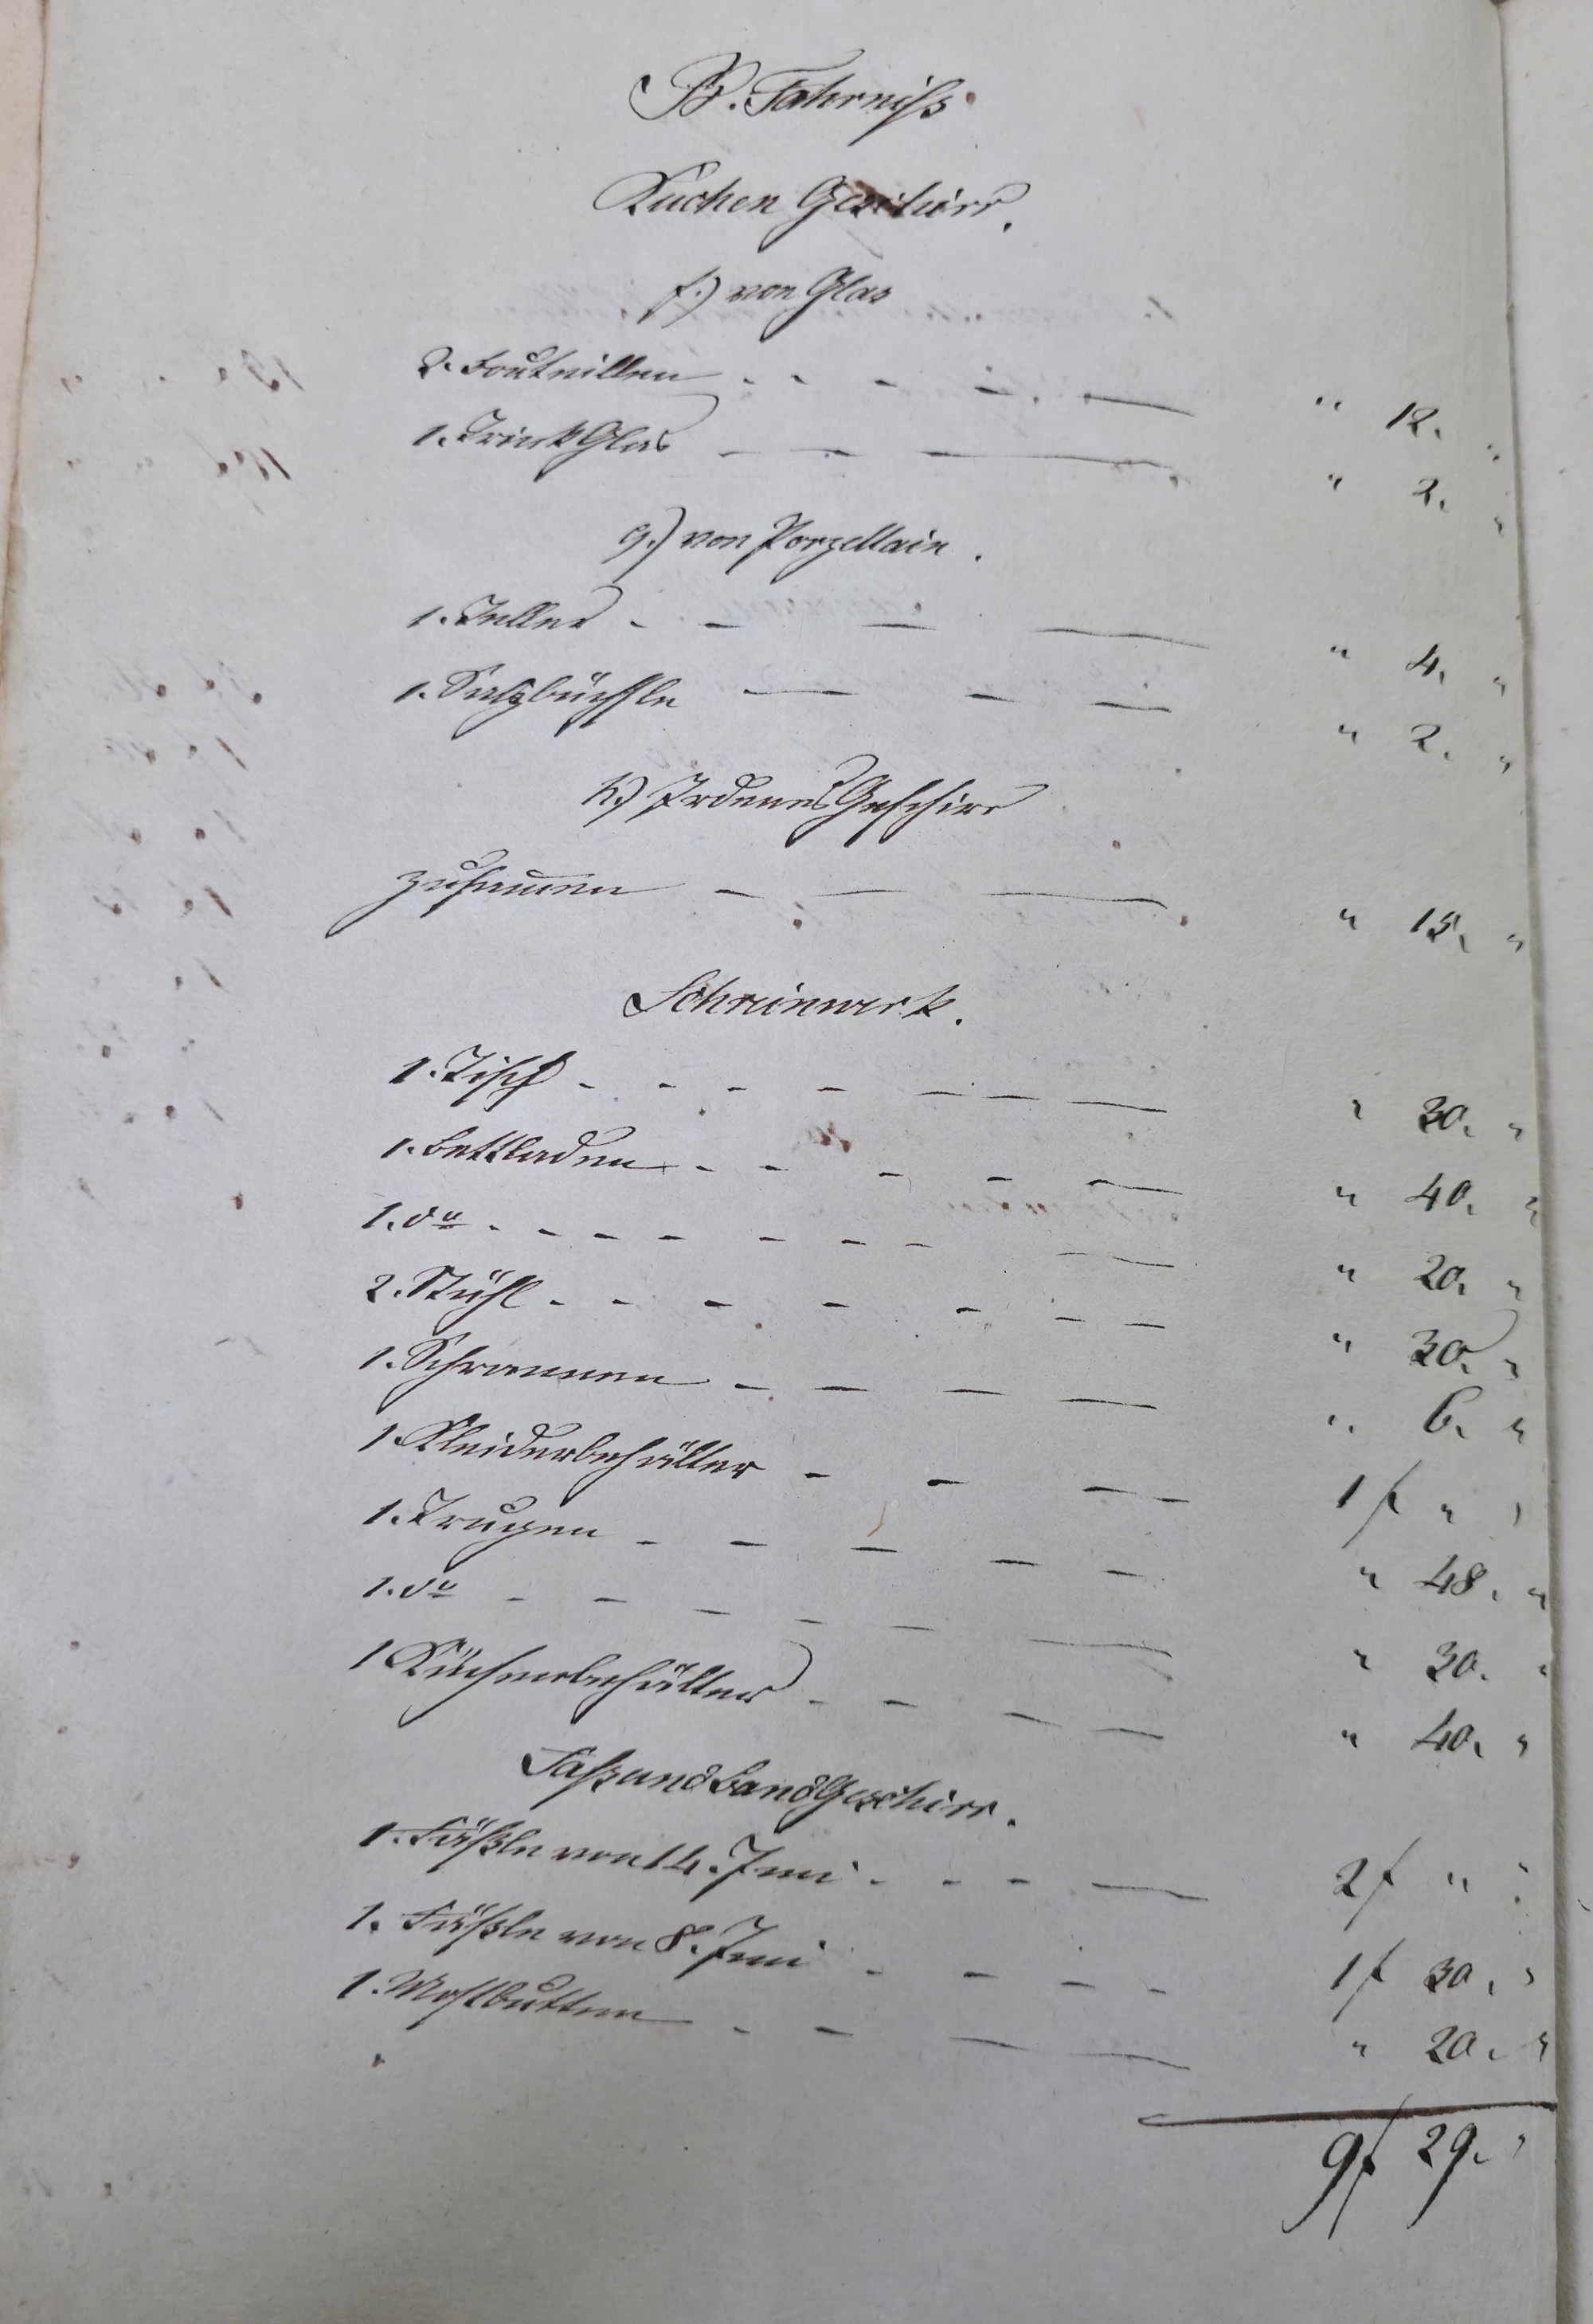 B. Fahrniß.
Kuchen Geschirr.
f.) von Glas
2. Bouteillen - - - - — " 12. "
1. Trink Glas — — — " 2. "
g.) von Porzellain.
1. Teller - — — — " 4. "
1. Salzbüchsle — — — " 2. "
h.) Irdenes Geschirr
zusammen — — — " 15. "
Schreinwerk.
1. Tisch - - - — — — — " 30. "
1. Bettladen - - - - — " 40. "
1. do - - - - - - - — " 20. "
2. Stühl - - - - - - - " 30. "
1. Schrannen — — — — " 6. "
1 Kleiderbehälter - - — — 1 f " "
1. Trugen - - — — — " 48. "
1. do - - - - - — " 30. "
1 Küchenbehälter - - — — " 40. "
Faß und Band Geschirr.
1. Fäßle von 14. Imi - - - — 2 f " "
1. Fäßle von 8. Imi - - - - 1 f 30. "
1. Mostbutten - - — — " 20. "
9 f 29. "